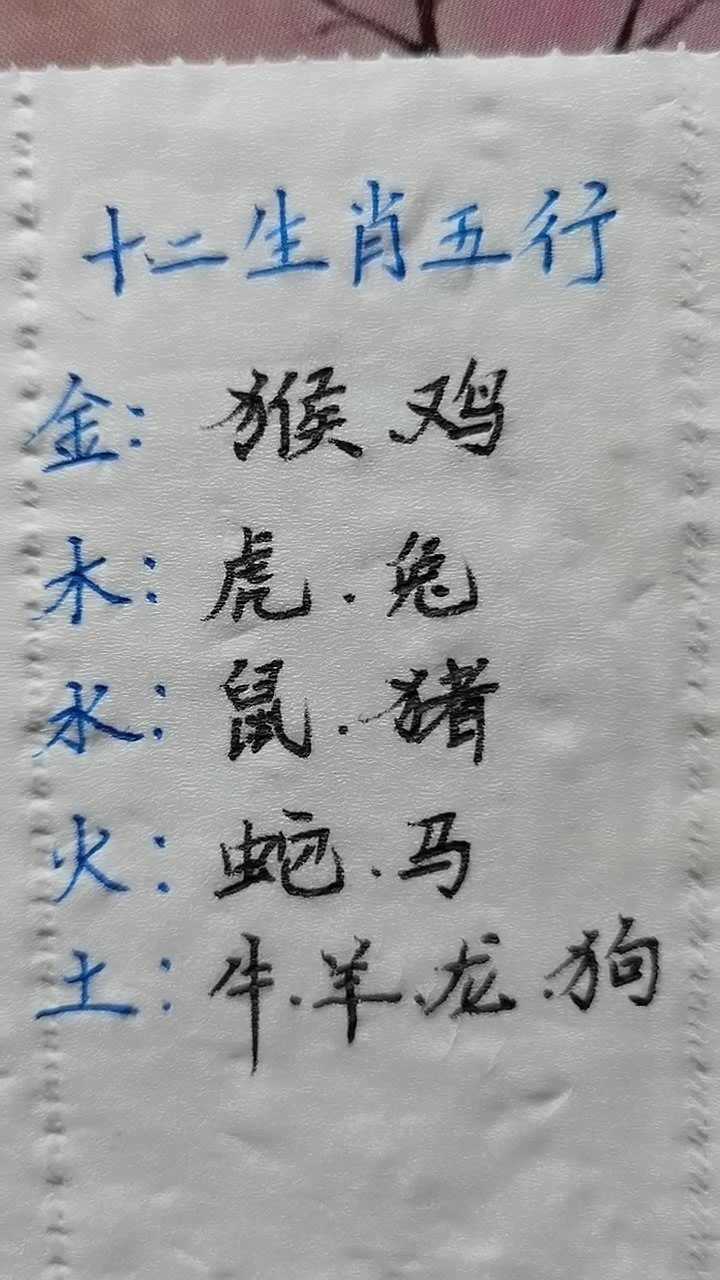 十二生肖五行
金：猴.鸡
木：虎.兔
水：鼠.猪
火：蛇.马
土：牛.羊.龙.狗